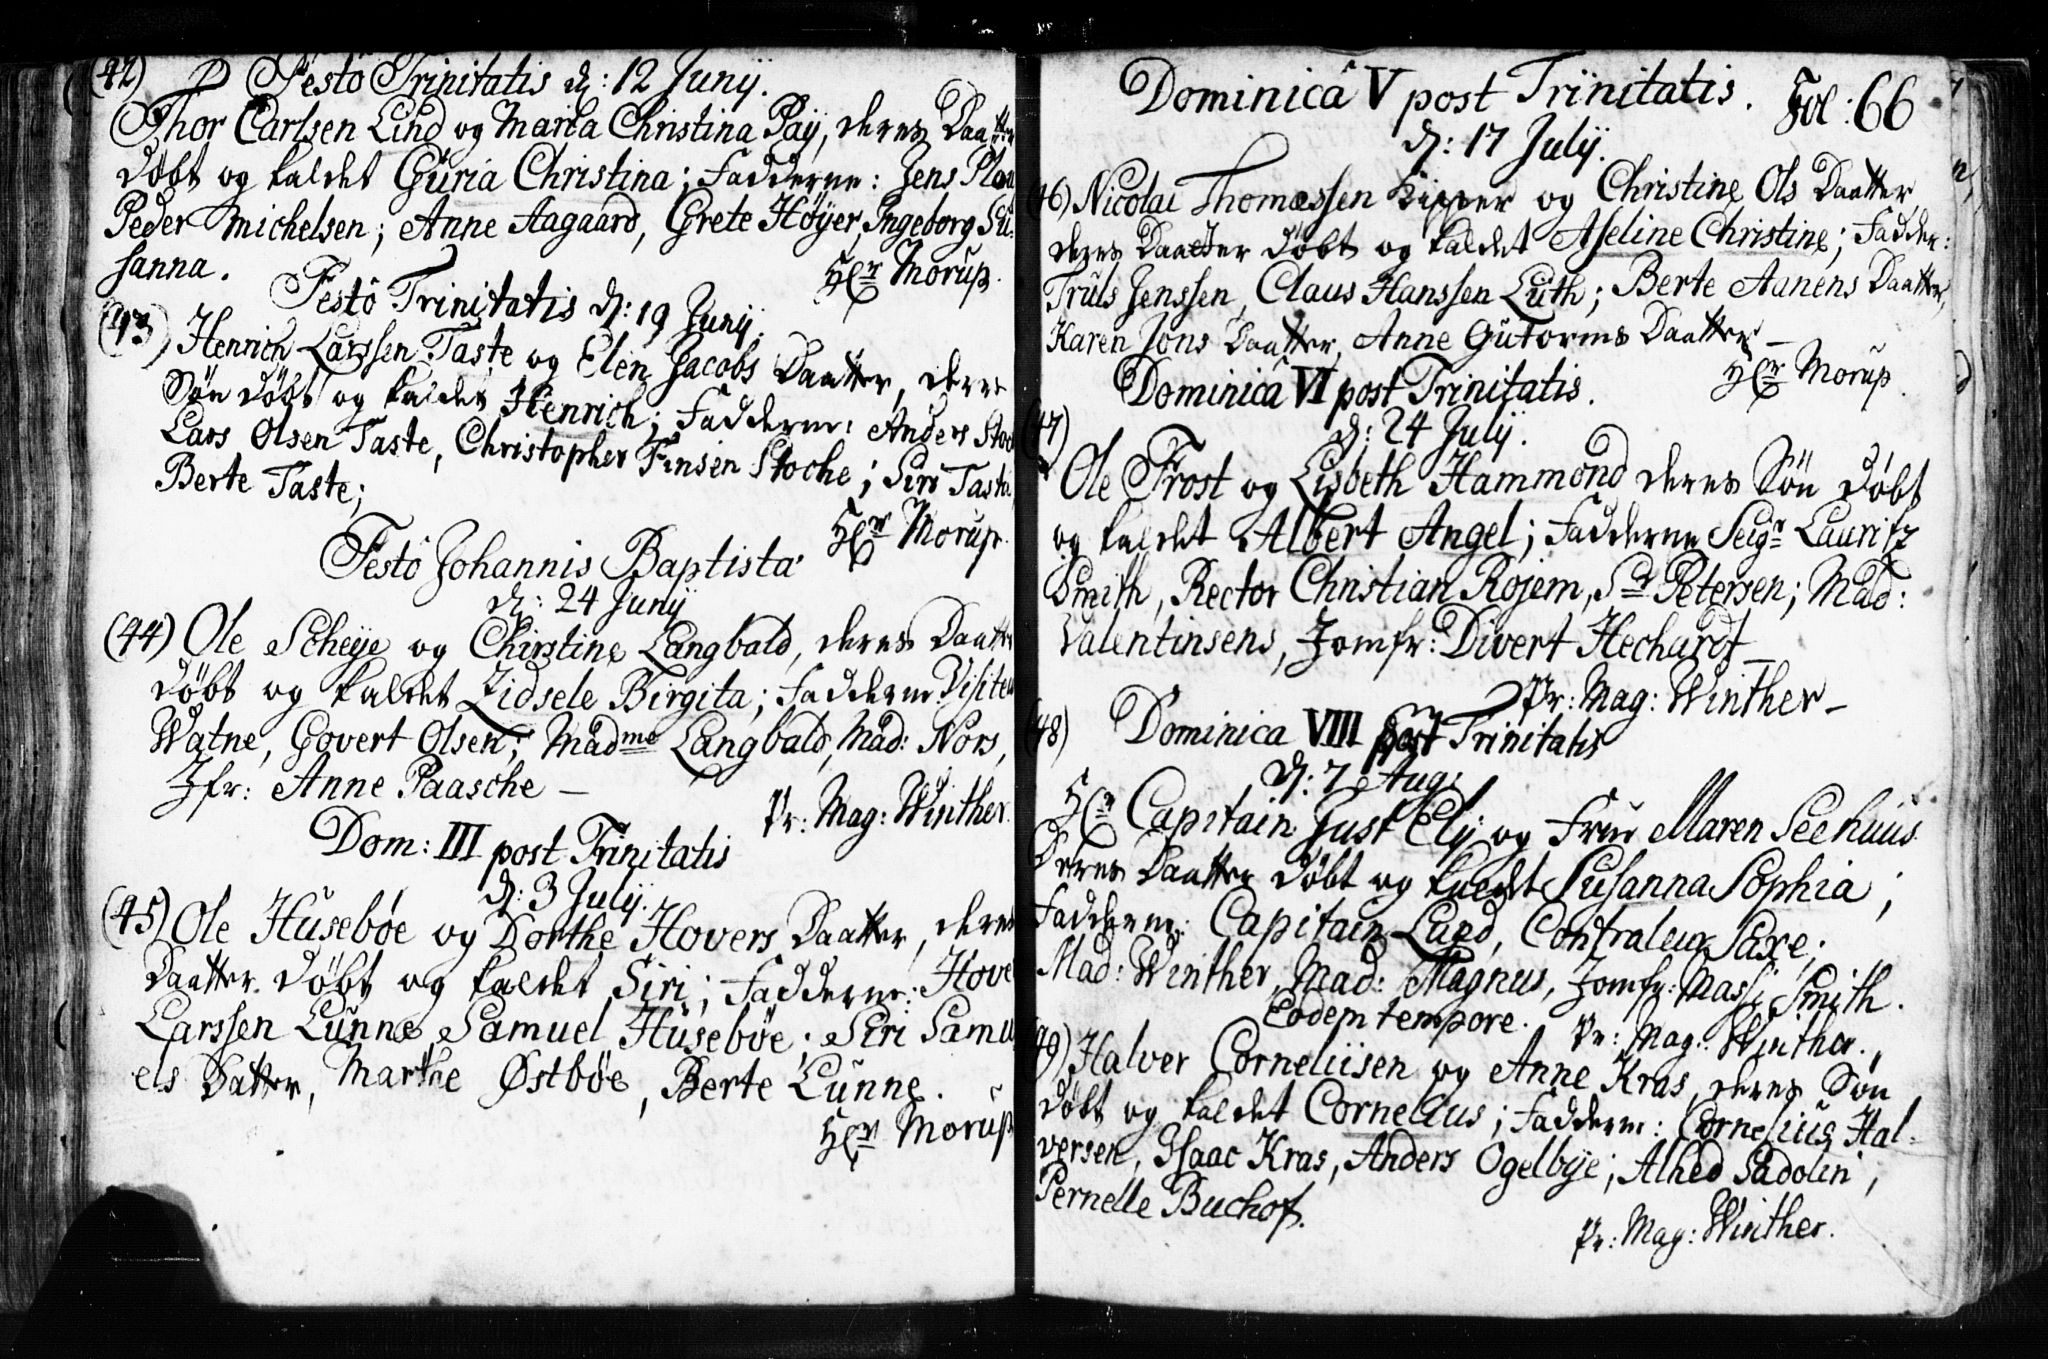 42) Festo Trinitatis d: 12 Junij.
Thor Carlsen Lind og Maria Christina Paij, deres Daatter
døbt og kaldet Guria Christina; Fadderne: Jens
Peder Michelsen; Anne Aagaard, Grete Høÿer, Ingeborg Su-
sanna.
Hr Morup.
Festo Trinitatis d: 19 Junij.
(43) Henrich Larssen Taste og Elen Jacobs Daatter, deres
Søn døbt og kaldet Henrich; Fadderne: Anders
Lars Olsen Taste, Christopher Finsen Stoche; Siri Tasta
Berte Taste;
Hr Morup.
Festo Johannis Baptista
d: 24 Junij
(44) Ole Scheÿe og Chirstine Langbald, deres Daatt
døbt og kaldet Zidsele Birgita; Fadderne Visiteu
Watne, Govert Olsen; Madme Langbald, Mad: Nors,
Jfr: Anne Paasche –
Pr: Mag: Winther.
Dom: III post Trinitatis
d: 3 Julij.
(45) Ole Husebøe og Dorthe Hovers Daatter, deres
Daatter døbt og kaldet Siri; Fadderne: Hove
Larssen Lunne, Samuel Husebøe; Siri Samu
els Datter, Marthe Østbøe, Berte Lunne.
Hr Morup
Dominica V post Trinitatis. Fol: 66
d: 17 Julij.
46) Nicolai Thomæssen Kipper og Christine Ols Daatter
deres Daatter døbt og kaldet Aseline Christine; Fadder:
Truls Jenssen, Claus Hanssen Luth; Berte Aanens Daatter,
Karen Jons Daatter, Anne Gutorms Daatter –
Hr Morup.
Dominica VI post Trinitatis.
(47)
d: 24 Julij.
Ole Frost og Lisbeth Hammond deres Søn døbt
og kaldet Albert Angel; Fadderne Seigr Lauritz
Smith, Rector Christian Rojem, Sr Petersen; Mad:
Valentinsens, Jomfr: Divert Hechardt
Pr: Mag: Winther –
48) Dominica VIII post Trinitatis
d: 7 Aug:
Hr Capitain Just Elÿ og Frue Maren Seehuus
Deres Daatter døbt og kaldt Susanna Sophia;
Fadderne: Capitain Land, Contraleur Saxe;
Mad: Winther, Mad: Magnus, Jomfr: Massi Smith.
Eodem tempore.
Pr: Mag: Winther.
49) Halver Corneliisen og Anne Kras, deres Søn
døbt og kaldet Cornelius; Fadderne: Cornelius Hal-
versen, Isaac Kras, Anders Ogelbÿe; Alhed Sadolin,
Pernelle Buchof.
Pr: Mag: Winther.